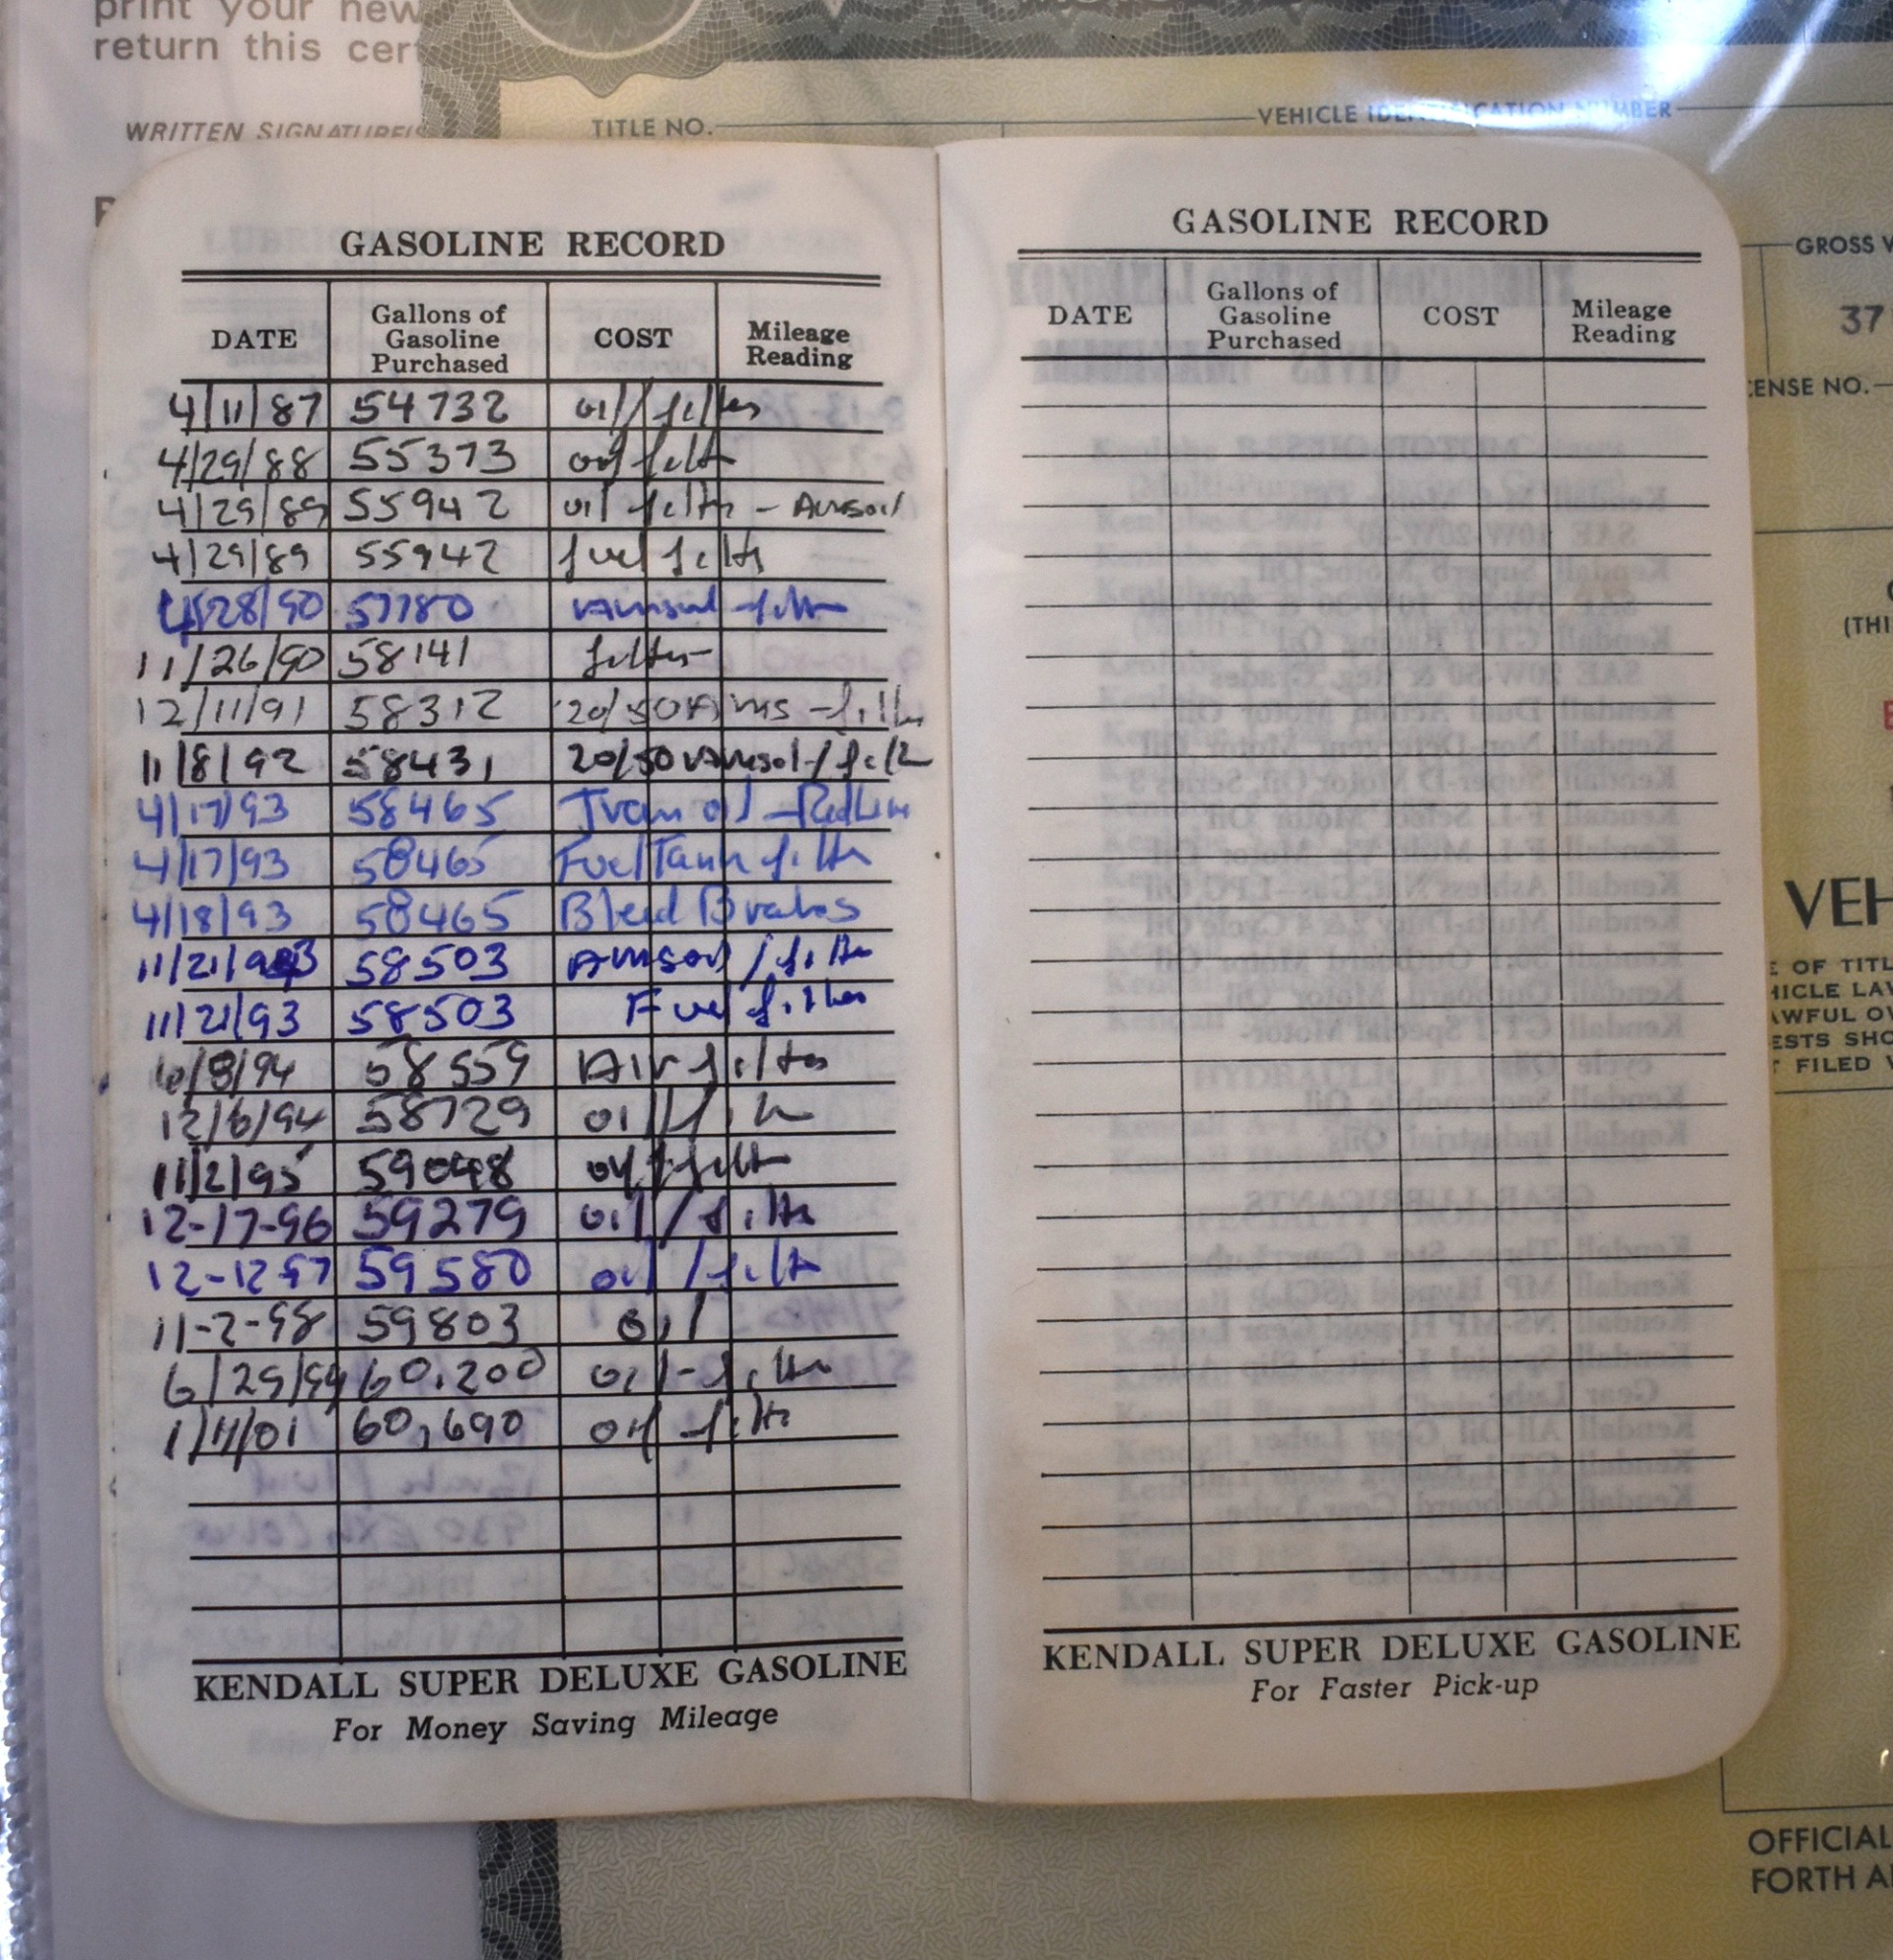 print your new
return this cer
WRITTEN SIGNATURE(S
TITLE NO.
VEHICLE IDENTIFICATION NUMBER
GROSS
37
ENSE NO.
(THI
VEH
E OF TITL
HICLE LAW
AWFUL OV
ESTS SHO
T FILED
OFFICIAL
FORTH
GASOLINE RECORD
DATE Gallons of Gasoline Purchased COST Mileage Reading
4/11/87 54732 oil/filter
4/29/88 55373 oil filter
4/29/89 55942 oil filter - Amsoil
4/29/89 55942 fuel filter
4/28/90 57780 Amsoil filter
11/26/90 58141 filter
12/11/91 58312 20/50 Ams - filter
11/8/92 58431 20/50 Amsol/filter
4/17/93 58465 Tran oil - Redline
4/17/93 58465 Fuel Tank filter
4/18/93 58465 Bleed Brakes
11/21/93 58503 Amsoil/filter
11/21/93 58503 Fuel filter
6/8/94 58559 Air filter
12/6/94 58729 oil/filter
11/2/95 59048 oil/filter
12-17-96 59279 oil/filter
12-12 97 59580 oil/filter
11-2-98 59803 oil
6/29/99 60.200 oil-filter
1/11/01 60,690 oil filter
KENDALL SUPER DELUXE GASOLINE
For Money Saving Mileage
GASOLINE RECORD
DATE Gallons of Gasoline Purchased COST Mileage Reading
KENDALL SUPER DELUXE GASOLINE
For Faster Pick-up